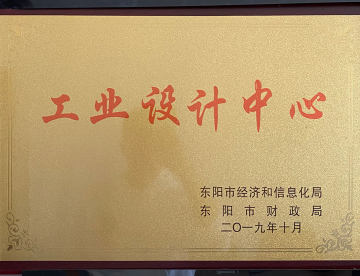 工业设计中心
东阳市经济和信息化局
东阳市财政局
二〇一九年十月